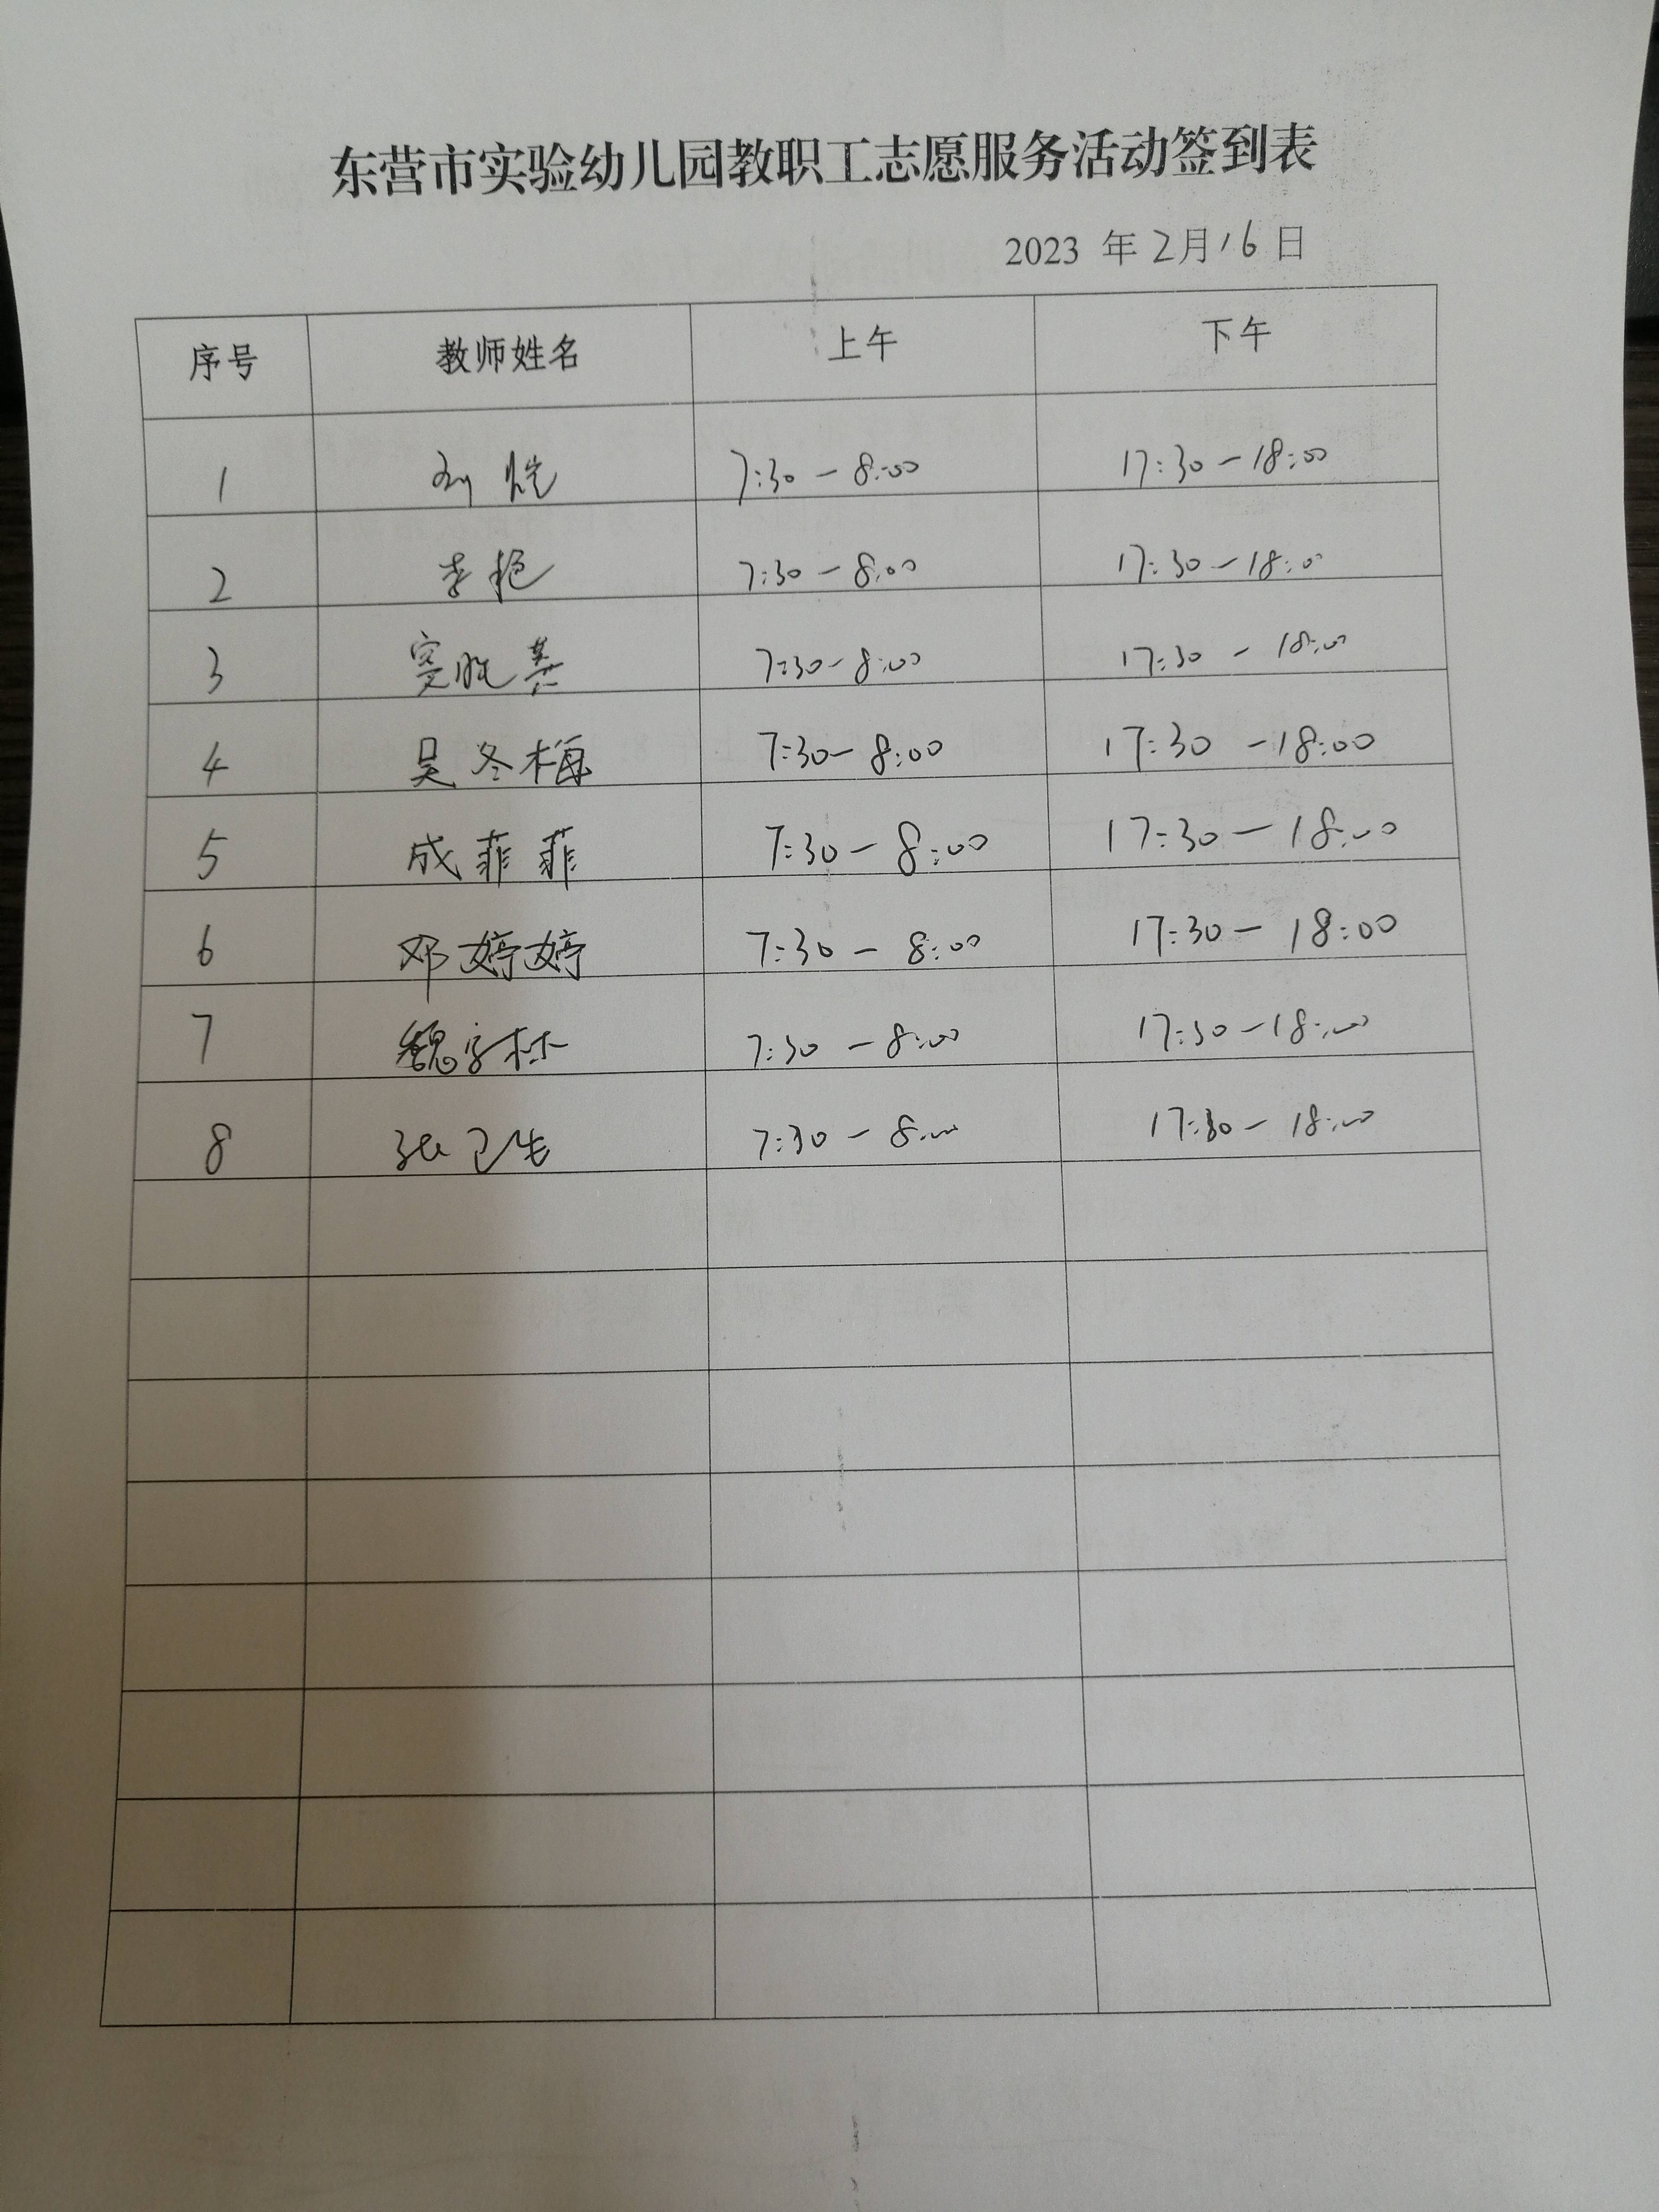 东营市实验幼儿园教职工志愿服务活动签到表
2023 年 2月16日
序号 教师姓名 上午 下午
1 刘 7:30-8:00 17:30-18:00
2 李艳 7:30-8:00 17:30-18:00
3 窦胜 7:30-8:00 17:30-18:00
4 吴冬梅 7:30-8:00 17:30-18:00
5 成菲菲 7:30-8:00 17:30-18:00
6 邓婷婷 7:30-8:00 17:30-18:00
7 魏字林 7:30-8:00 17:30-18:00
8 张卫生 7:30-8:00 17:30-18:00